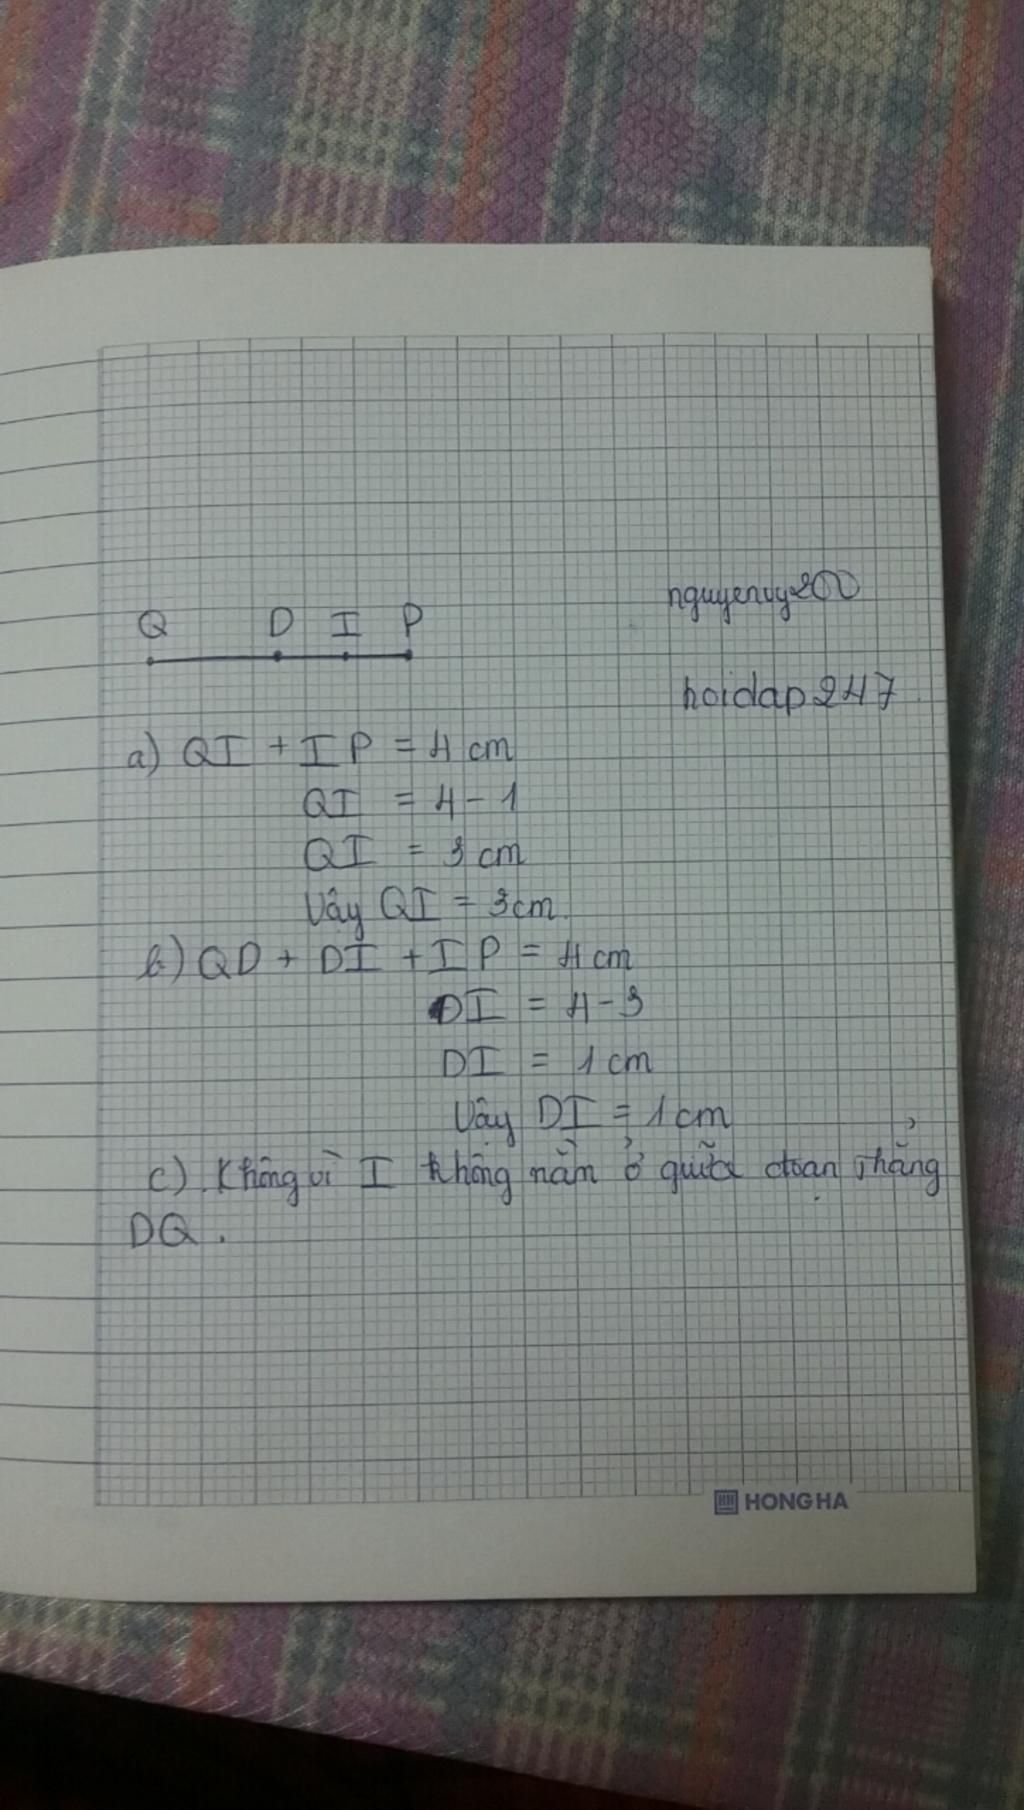 nguyenvy200
Q D I P
hoidap247
a) QI + IP = 4 cm
QI = 4 - 1
QI = 3 cm
Vậy QI = 3cm.
b) QD + DI + IP = 4 cm
DI = 4 - 3
DI = 1 cm
Vậy DI = 1 cm
c). Không vì I không nằm ở giữa đoạn thẳng
DQ.
HONG HA